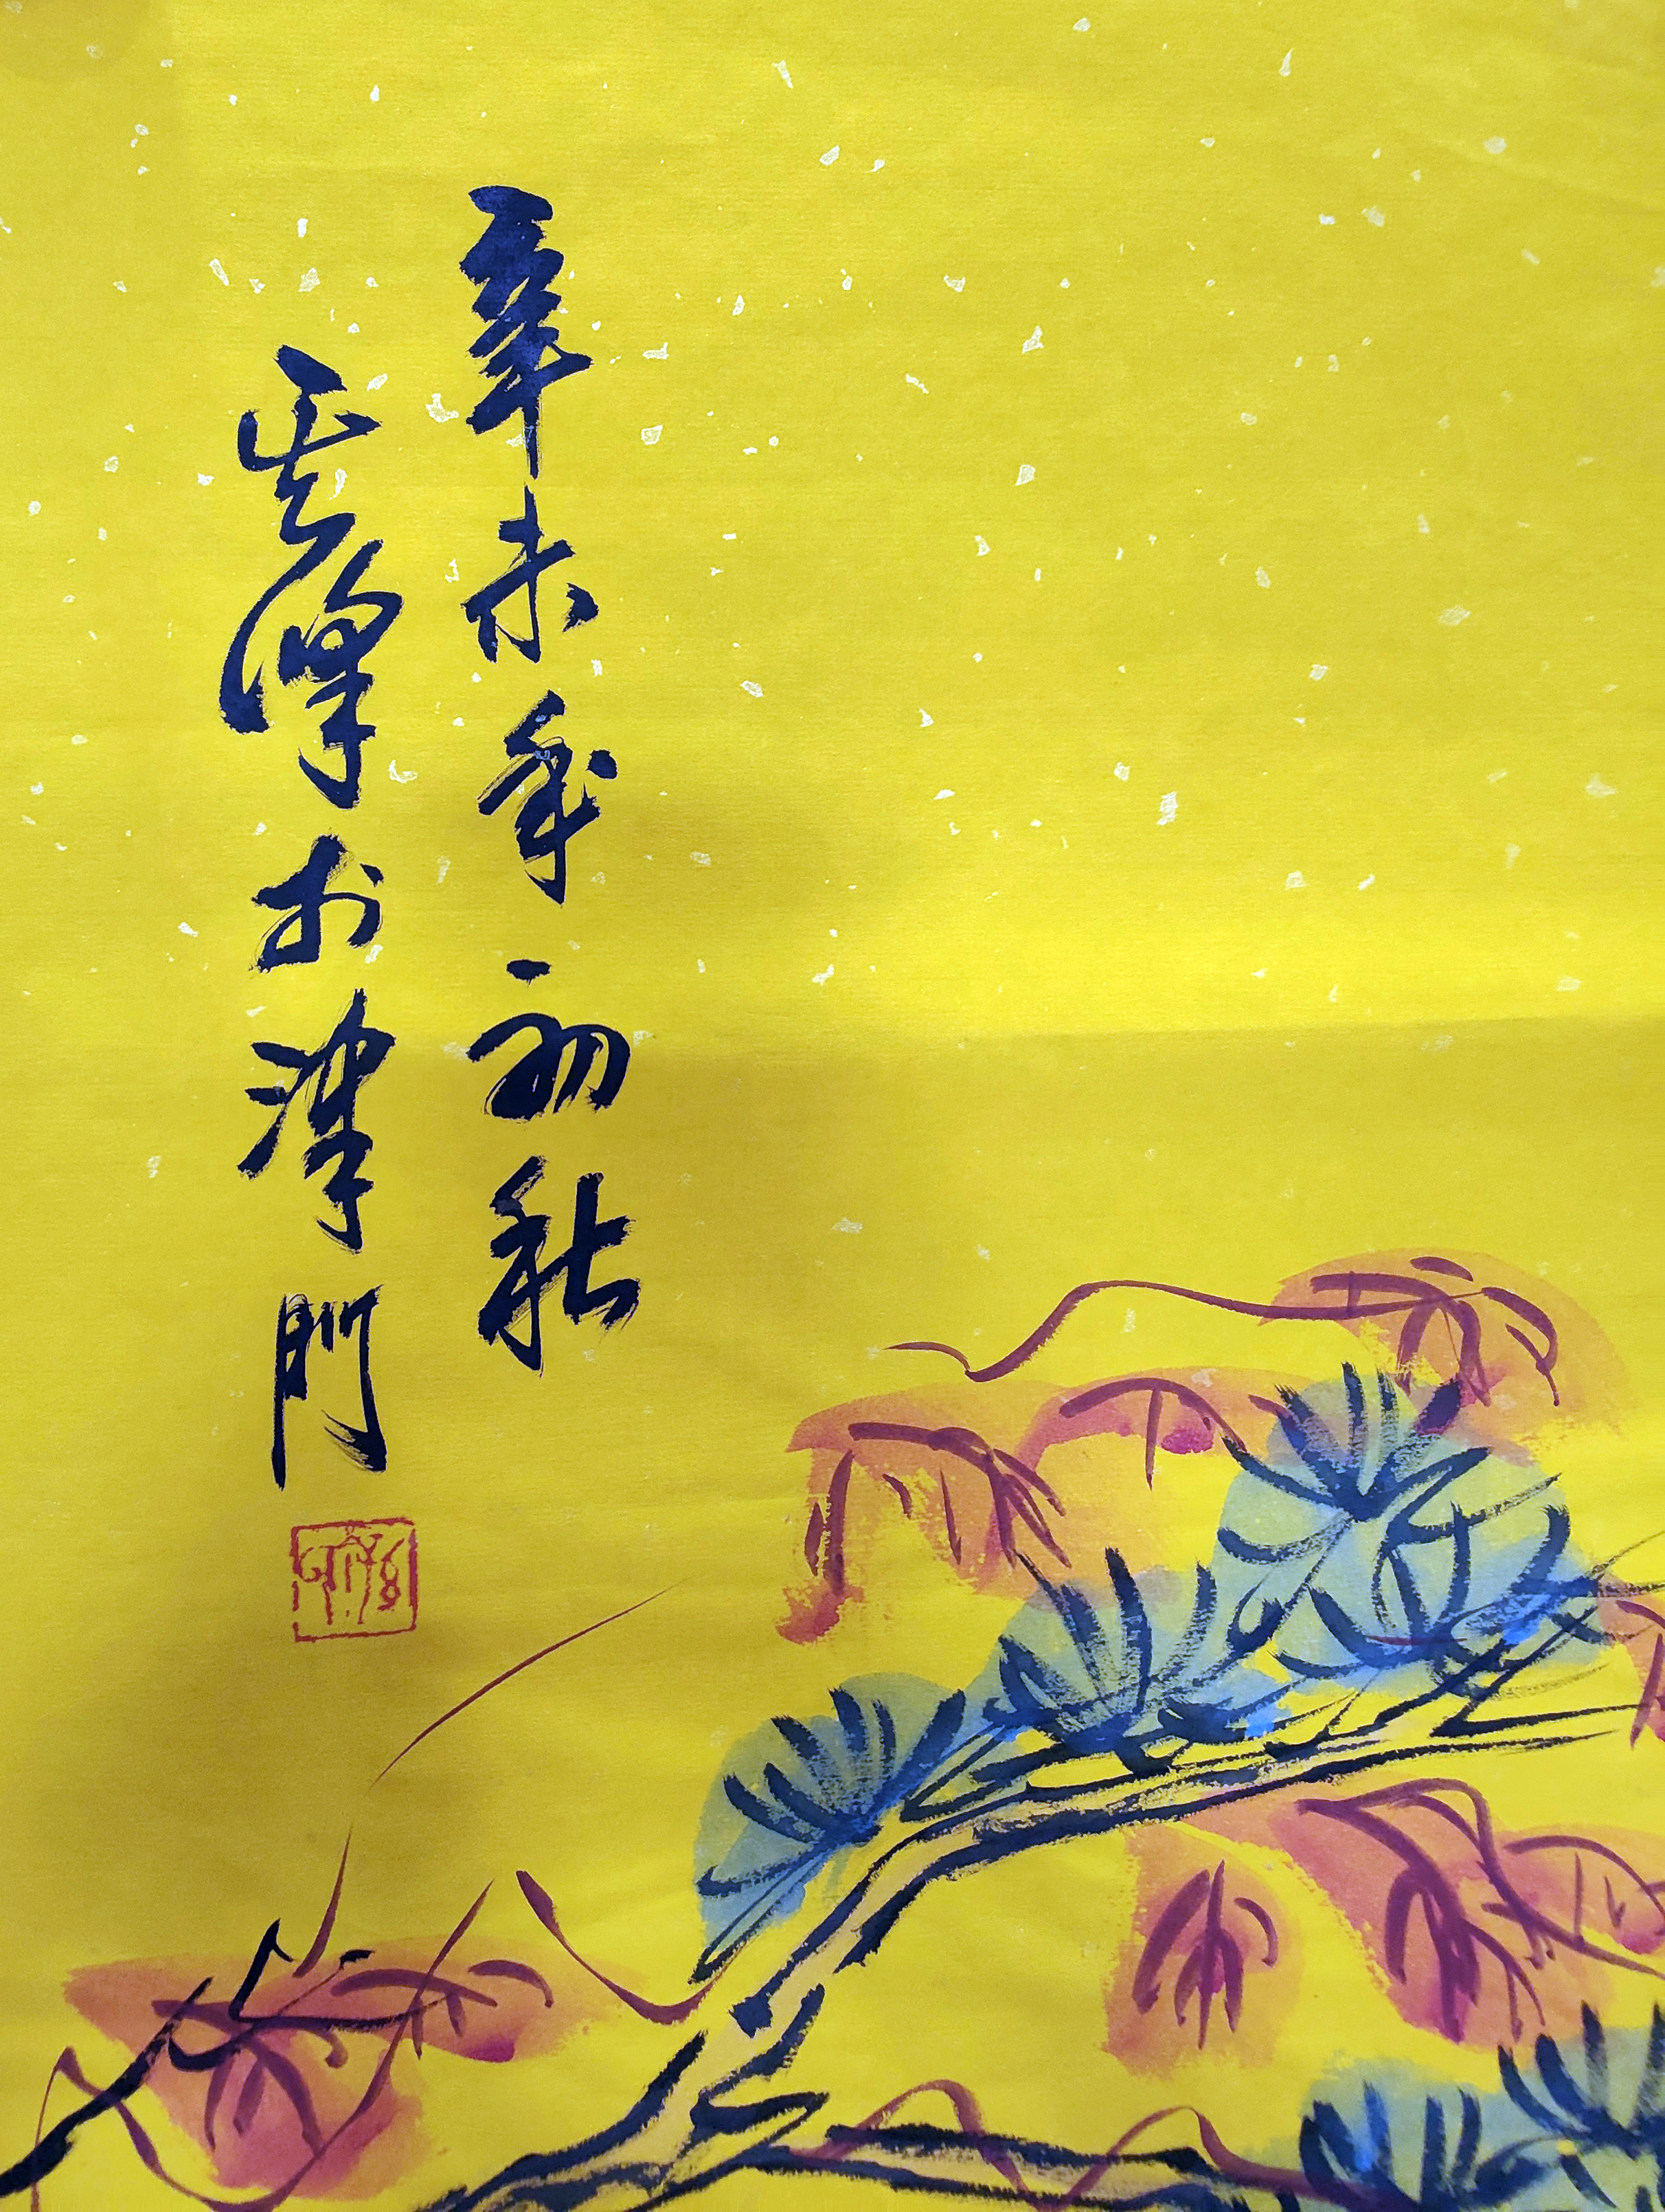 辛未年初秋
于津門